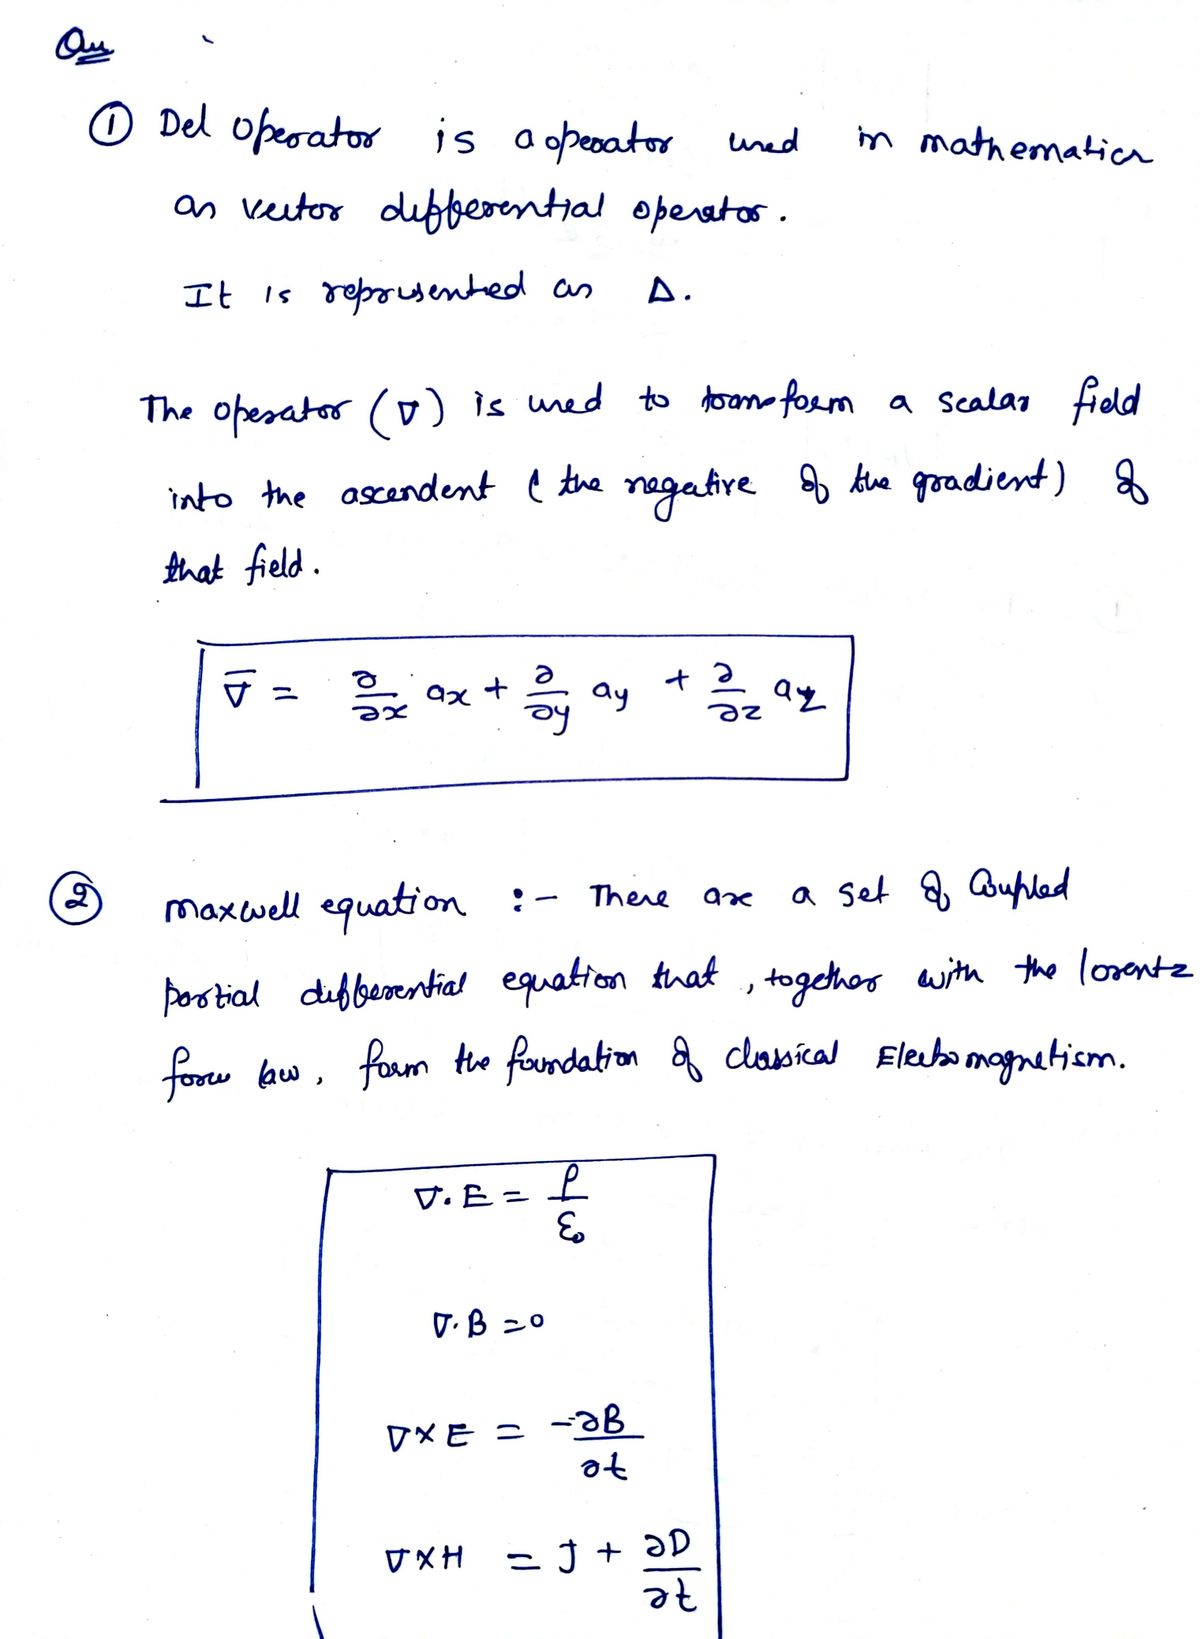 Qu
① Del operator is a operator used in mathematics
as vector differential operator.
It is represented as Δ.
The operator (∇) is used to transform a scalar field
into the ascendent ( the negative of the gradient) of
that field.
∇̅ = ∂/∂x ax + ∂/∂y ay + ∂/∂z az
② maxwell equation :- There are a set of Coupled
partial differential equation that , together with the lorentz
force law, form the foundation of classical Electromagnetism.
∇.E = ρ/ε₀
∇.B = 0
∇×E = -∂B/∂t
∇×H = J + ∂D/∂t